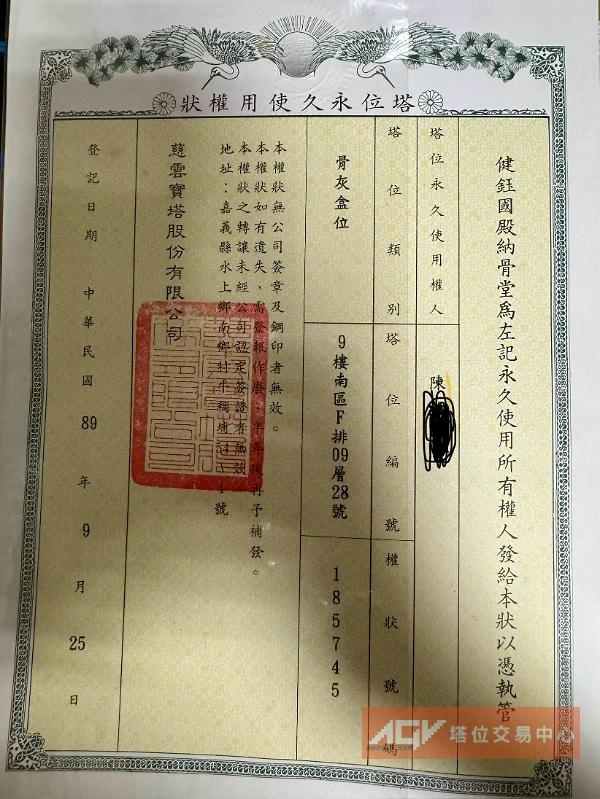 塔位永久使用權狀
健鈺國殿納骨堂為左記永久使用所有權人發給本狀以憑執管
塔位永久使用權人
陳
塔位類別
塔位編號
權狀號碼
骨灰盒位
9樓南區F排09層28號
185745
本權狀無公司簽章及鋼印者無效。
本權狀如有遺失、需登報作廢，半年後再予補發。
本權狀之轉讓未經公司認定簽證者無效
地址：嘉義縣水上鄉南鄉村牛稠埔54 1號
慈雲寶塔股份有限公司
登記日期 中華民國 89 年 9 月 25 日
AGV 塔位交易中心